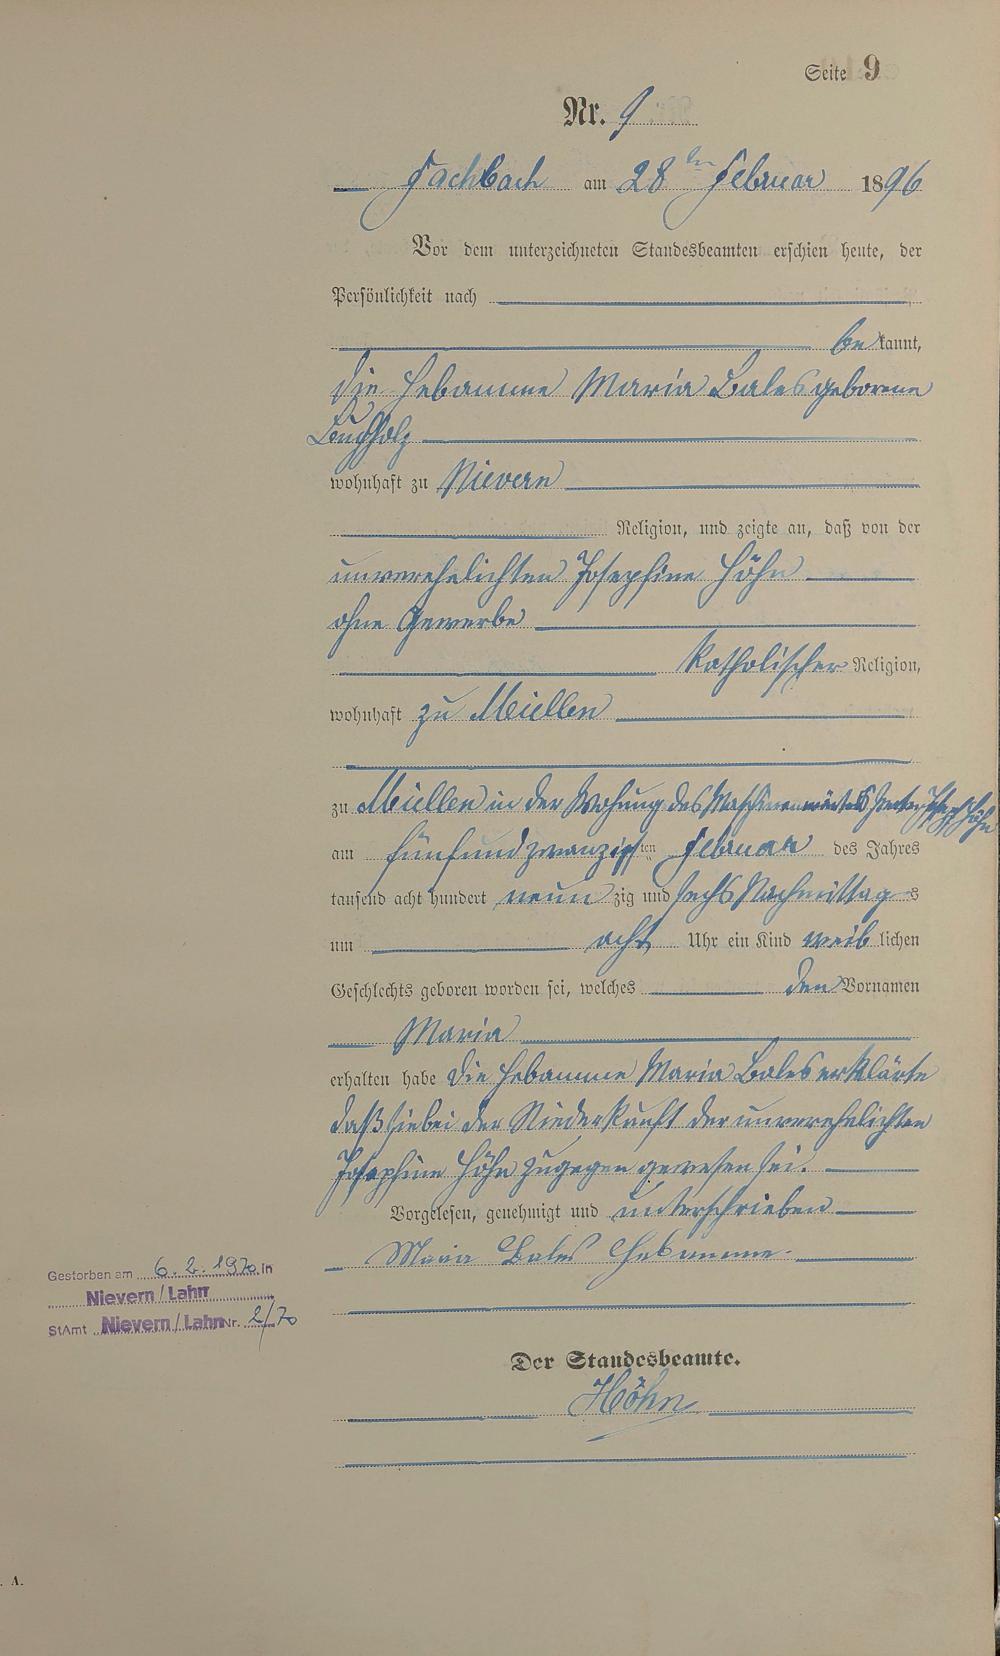 Seite 9
Nr. 9
Fachbach am 28ten Februar 1896
Vor dem unterzeichneten Standesbeamten erschien heute, der
Persönlichkeit nach
bekannt,
die Hebamme Maria Bales geborene
Buchholz
wohnhaft zu Nievern
Religion, und zeigte an, daß von der
unverehelichten Josephine Höhn
ohne Gewerbe
katholischer Religion,
wohnhaft zu Miellen
zu Miellen in der Wohnung des Maschinenwärters Höhn
am fünfundzwanzigsten Februar des Jahres
tausend acht hundert neunzig und sechs Nachmittags
um acht Uhr ein Kind weiblichen
Geschlechts geboren worden sei, welches den Vornamen
Maria
erhalten habe die Hebamme Maria Bales erklärte
daß sie bei der Niederkunft der unverehelichten
Josephine Höhn zugegen gewesen sei.
Vorgelesen, genehmigt und unterschrieben
Maria Bales Hebamme.
Gestorben am 6.2.1970 in
Nievern/Lahn
StAmt Nievern/Lahn Nr. 2/70
Der Standesbeamte.
Höhn
. A.